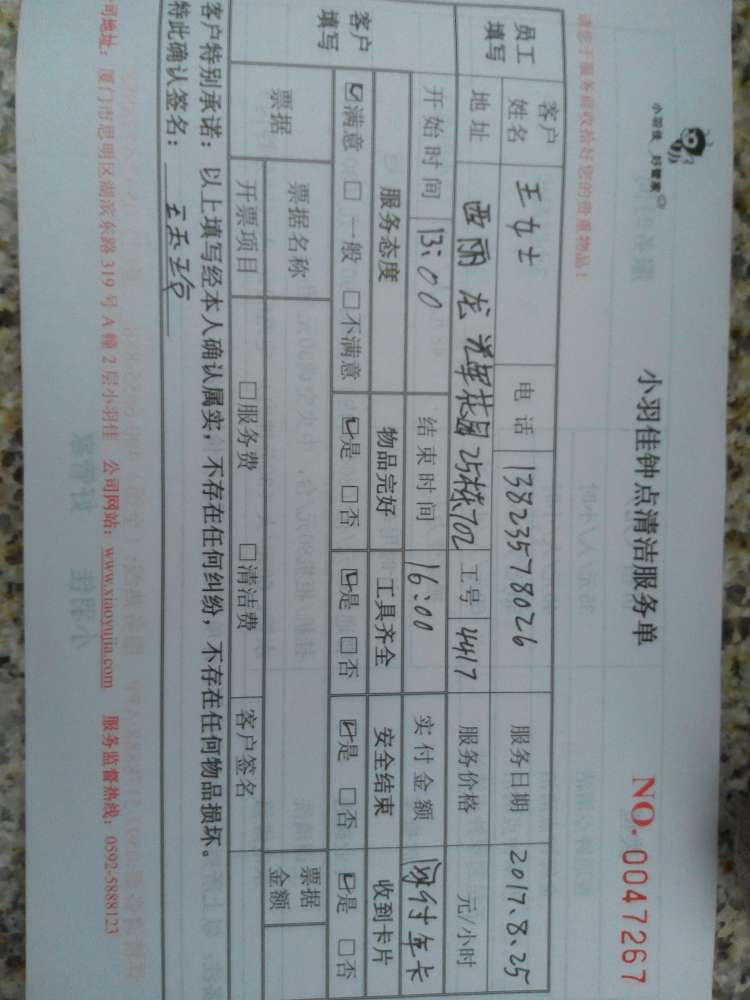 小羽佳 好管家
小羽佳钟点清洁服务单
NO. 0047267
请您于服务前收拾好您的贵重物品!
员工填写 客户姓名 王女士 电话 13823578026 服务日期 2017.8.25
地址 西丽 龙 花园25栋702 工号 4417 服务价格 元/小时
开始时间 13:00 结束时间 16:00 实付金额 网付年卡
客户填写 服务态度 物品完好 工具齐全 安全结束 收到卡片
☑满意 □一般 □不满意 ☑是 □否 ☑是 □否 ☑是 □否 ☑是 □否
票据 票据名称 票据金额
开票项目 □服务费 □清洁费 客户签名
客户特别承诺:以上填写经本人确认属实,不存在任何纠纷,不存在任何物品损坏。
特此确认签名:
司地址:厦门市思明区湖滨东路319号A幢2层小羽佳 公司网站:www.xiaoyujia.com 服务监督热线:0592-5888123